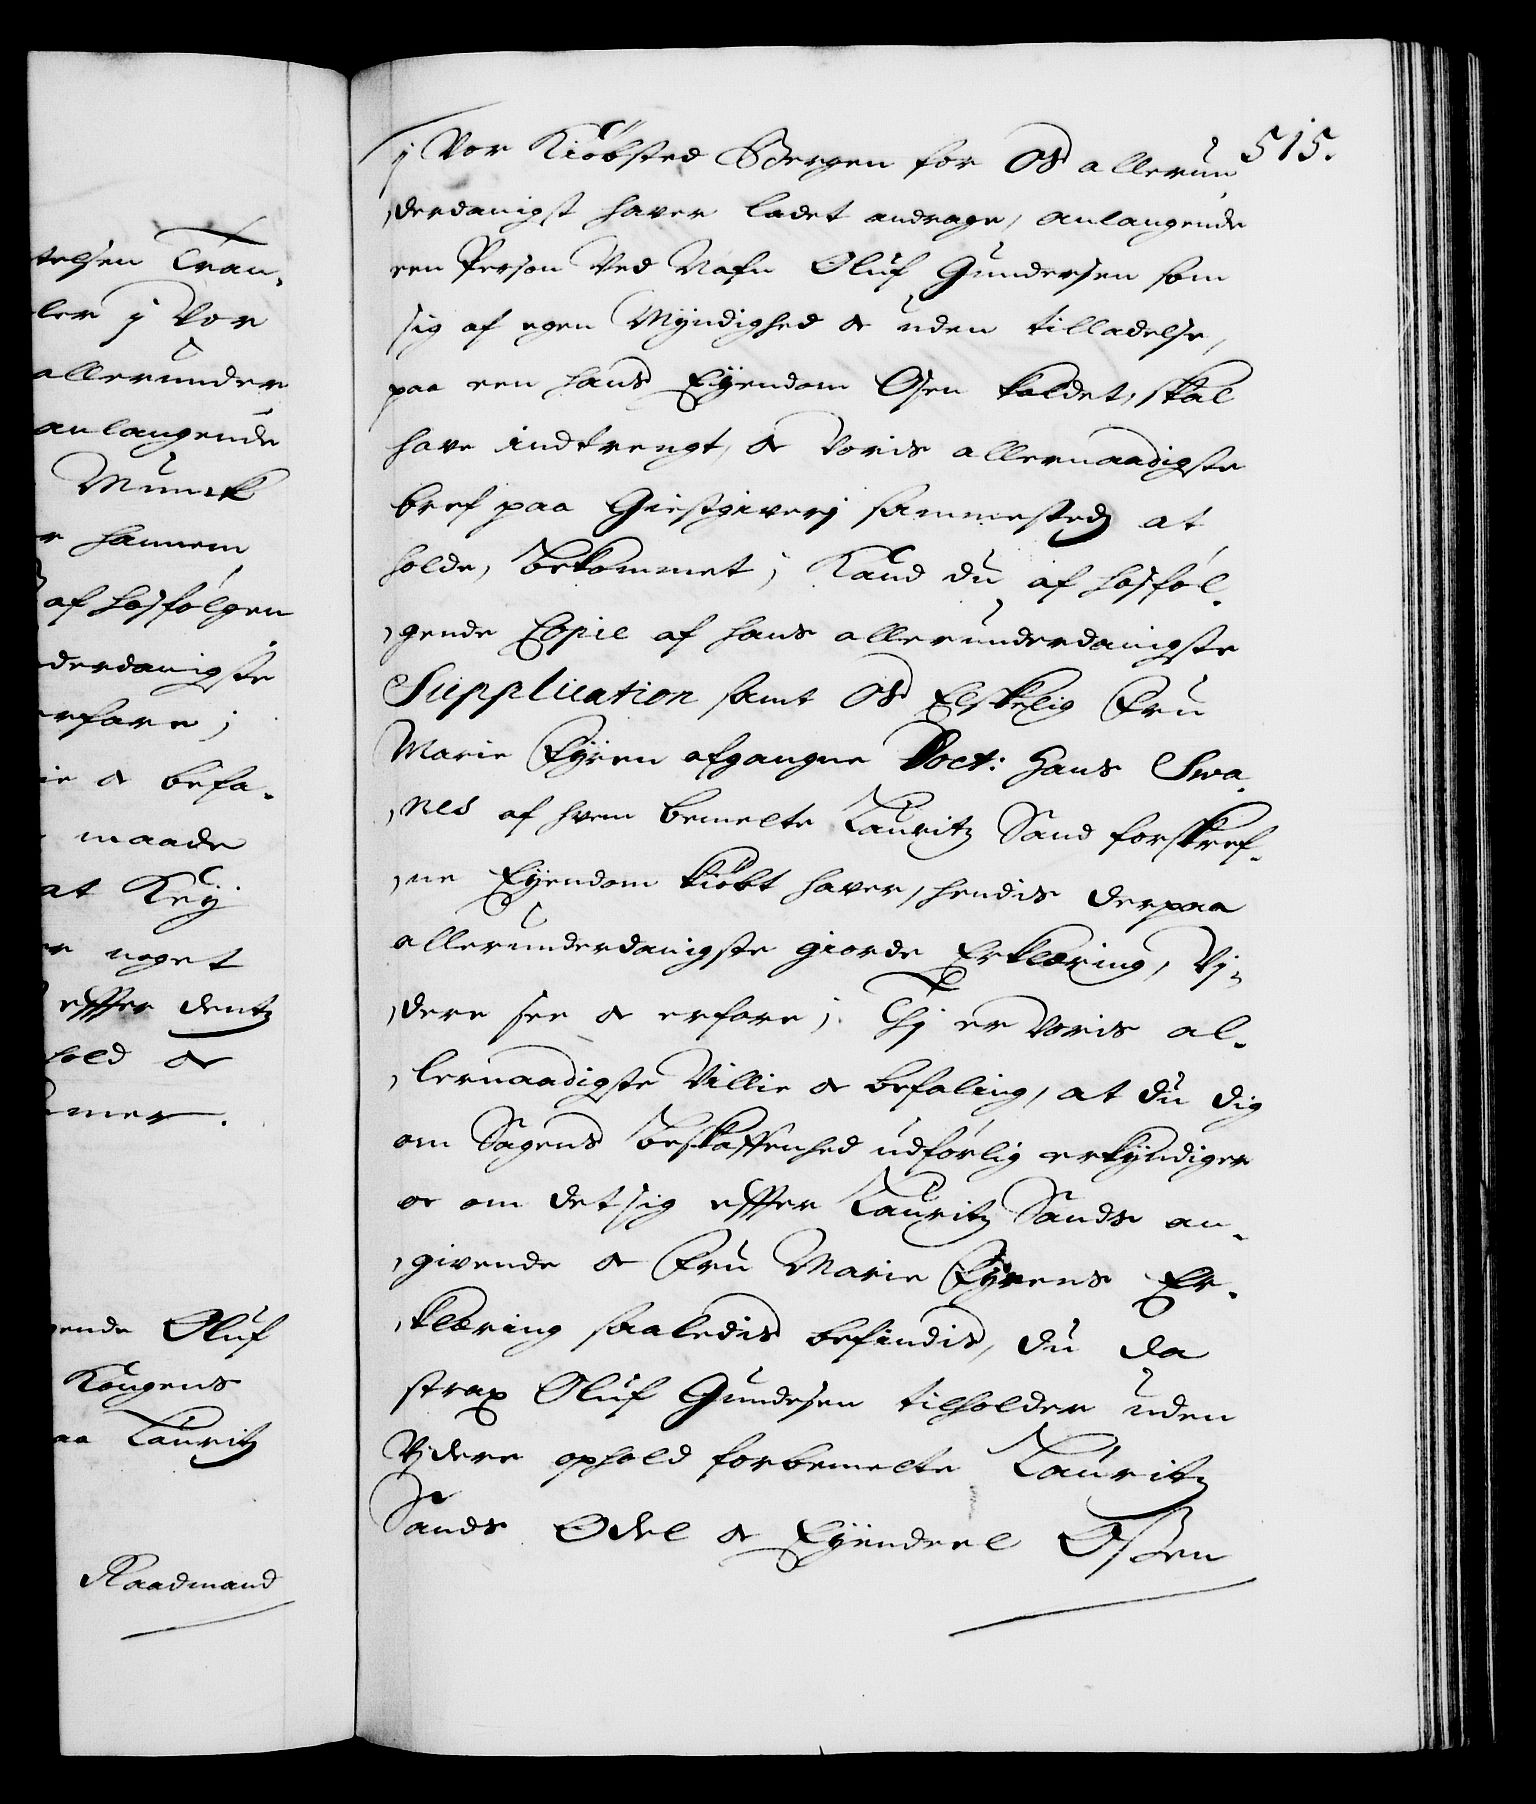 telsen Tran-
ler j Vor
allerunder
anlangende
Munck
r hannem
af hosfølgen
derdanigste
erfare;
ie & befa-
maade
at Kej
er noget
effter dentz
hold &
mer.
gende Oluf
Kongens
aa Lauritz
Raadmand
515.
j Vor Kiöbsted Bergen for Os allerun
,derdanigst haver ladet andrage, anlangende
een Person Ved Nafn Oluf Gundersen som
sig af egen Myndighed & uden tilladelse,
paa een hans Eyendom Osen kaldet, skal
have indtrengt, & Voris allernaadigste
bref paa Giestgiverj sammesteds at
holde, bekommet; Kand du af hosföl-
,gende Copie af hans allerunderdanigste
Supplication samt Os Elskelig Fru
Marie Fyren afgangne Doct: Hans Swa-
,nes af hvem bemelte Lauritz Sand forskref-
,ne Eyendom kiöbt haver, hendis derpaa
allerunderdanigste giorde Erklæring, Vj-
,dere see & erfare; Thj er Voris al-
,lernaadigste Villie & befaling, at du dig
om Sagens beskaffenhed udförlig erkyndiger
& om det sig effter Lauritz Sands an-
,givende & Fru Marie Fyrens Er-
,klæring saaledis befindis, du da
strax Oluf Gundesen tilholder uden
Vjdere ophold forbemelte Lauritz
Sands Odel & Eyendeel Ossen